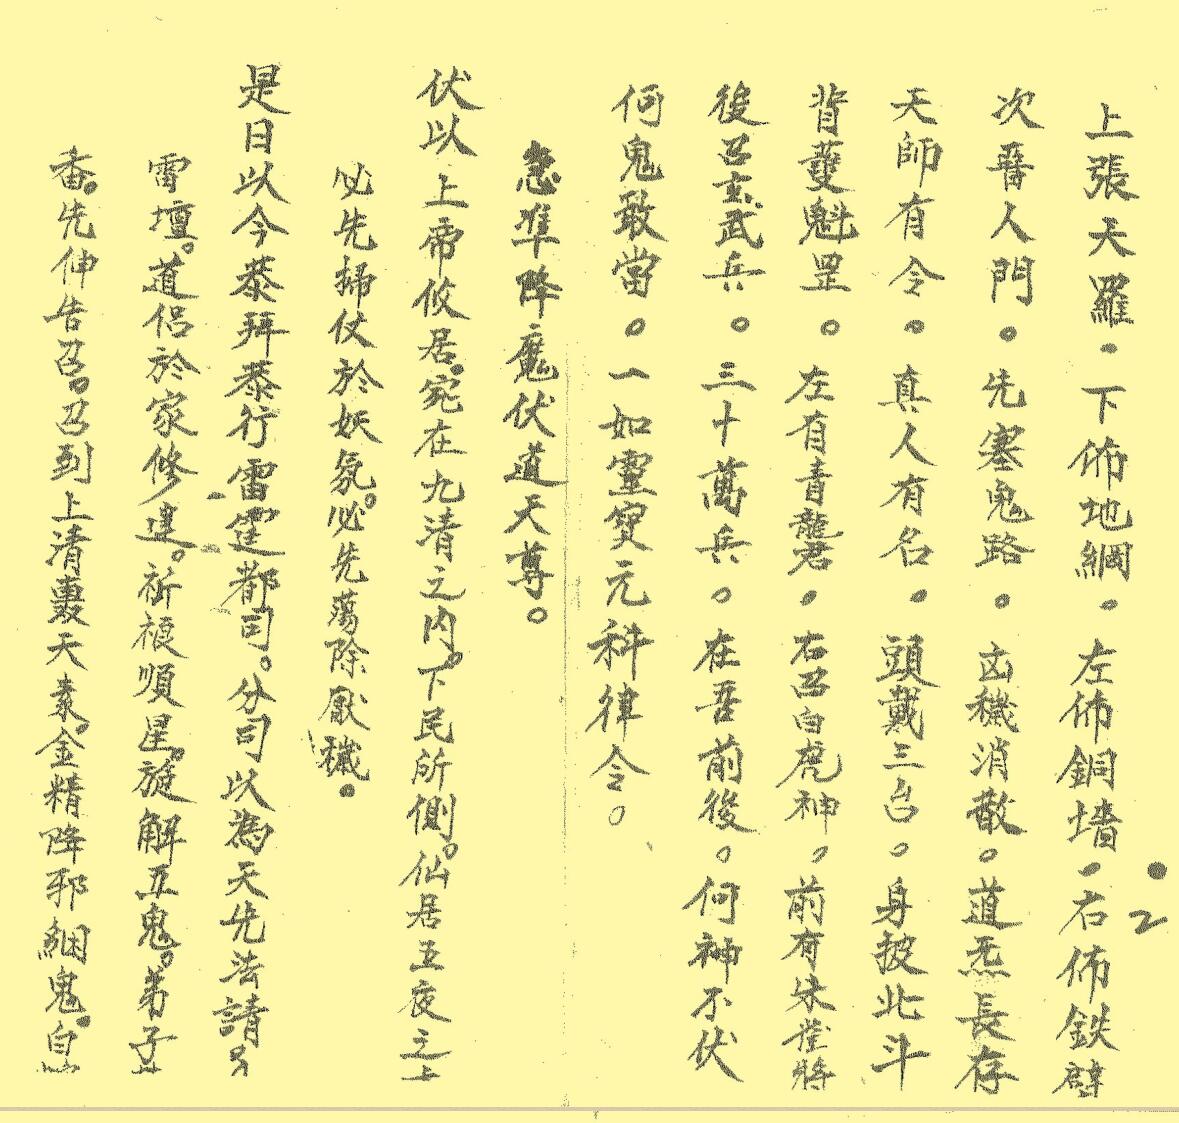 上張天羅。下佈地網。左佈銅墻。右佈鉄壁
2
次晉人門。先塞鬼路。凶穢消散。道炁長存
天師有令。真人有名。頭戴三台。身披北斗
背䕫魁罡。左有青龍君。右召白虎神。前有朱雀將
後召玄武兵。三十萬兵。在吾前後。何神不伏
何鬼敢當。一如靈寶元科律令。
急準降魔伏道天尊。
伏以上帝攸居。宛在九清之内。下民所側。仙居五夜之上
必先掃仗於妖氛。必先蕩除厭穢。
是日以今恭拜恭行雷霆都司。分司以為天先法請
雷壇。道侶於家修建。祈禳順星。旋解五鬼。弟子
香。先伸告召。召到上清轟天素。金精降邪綑鬼。白